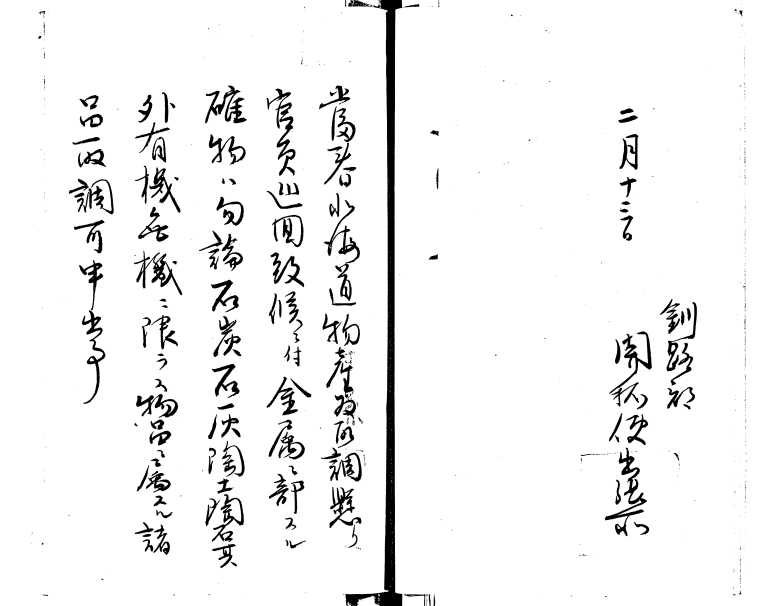 二月十三日
釧路郡
開拓使出張所
當春北海道物産為取調懸り
官員巡回致候ニ付金属之部スル
礦物ハ勿論石炭石灰陶土陶石其
外有機無機ニ限ラス物品ニ属スル諸
品一取調可申出事